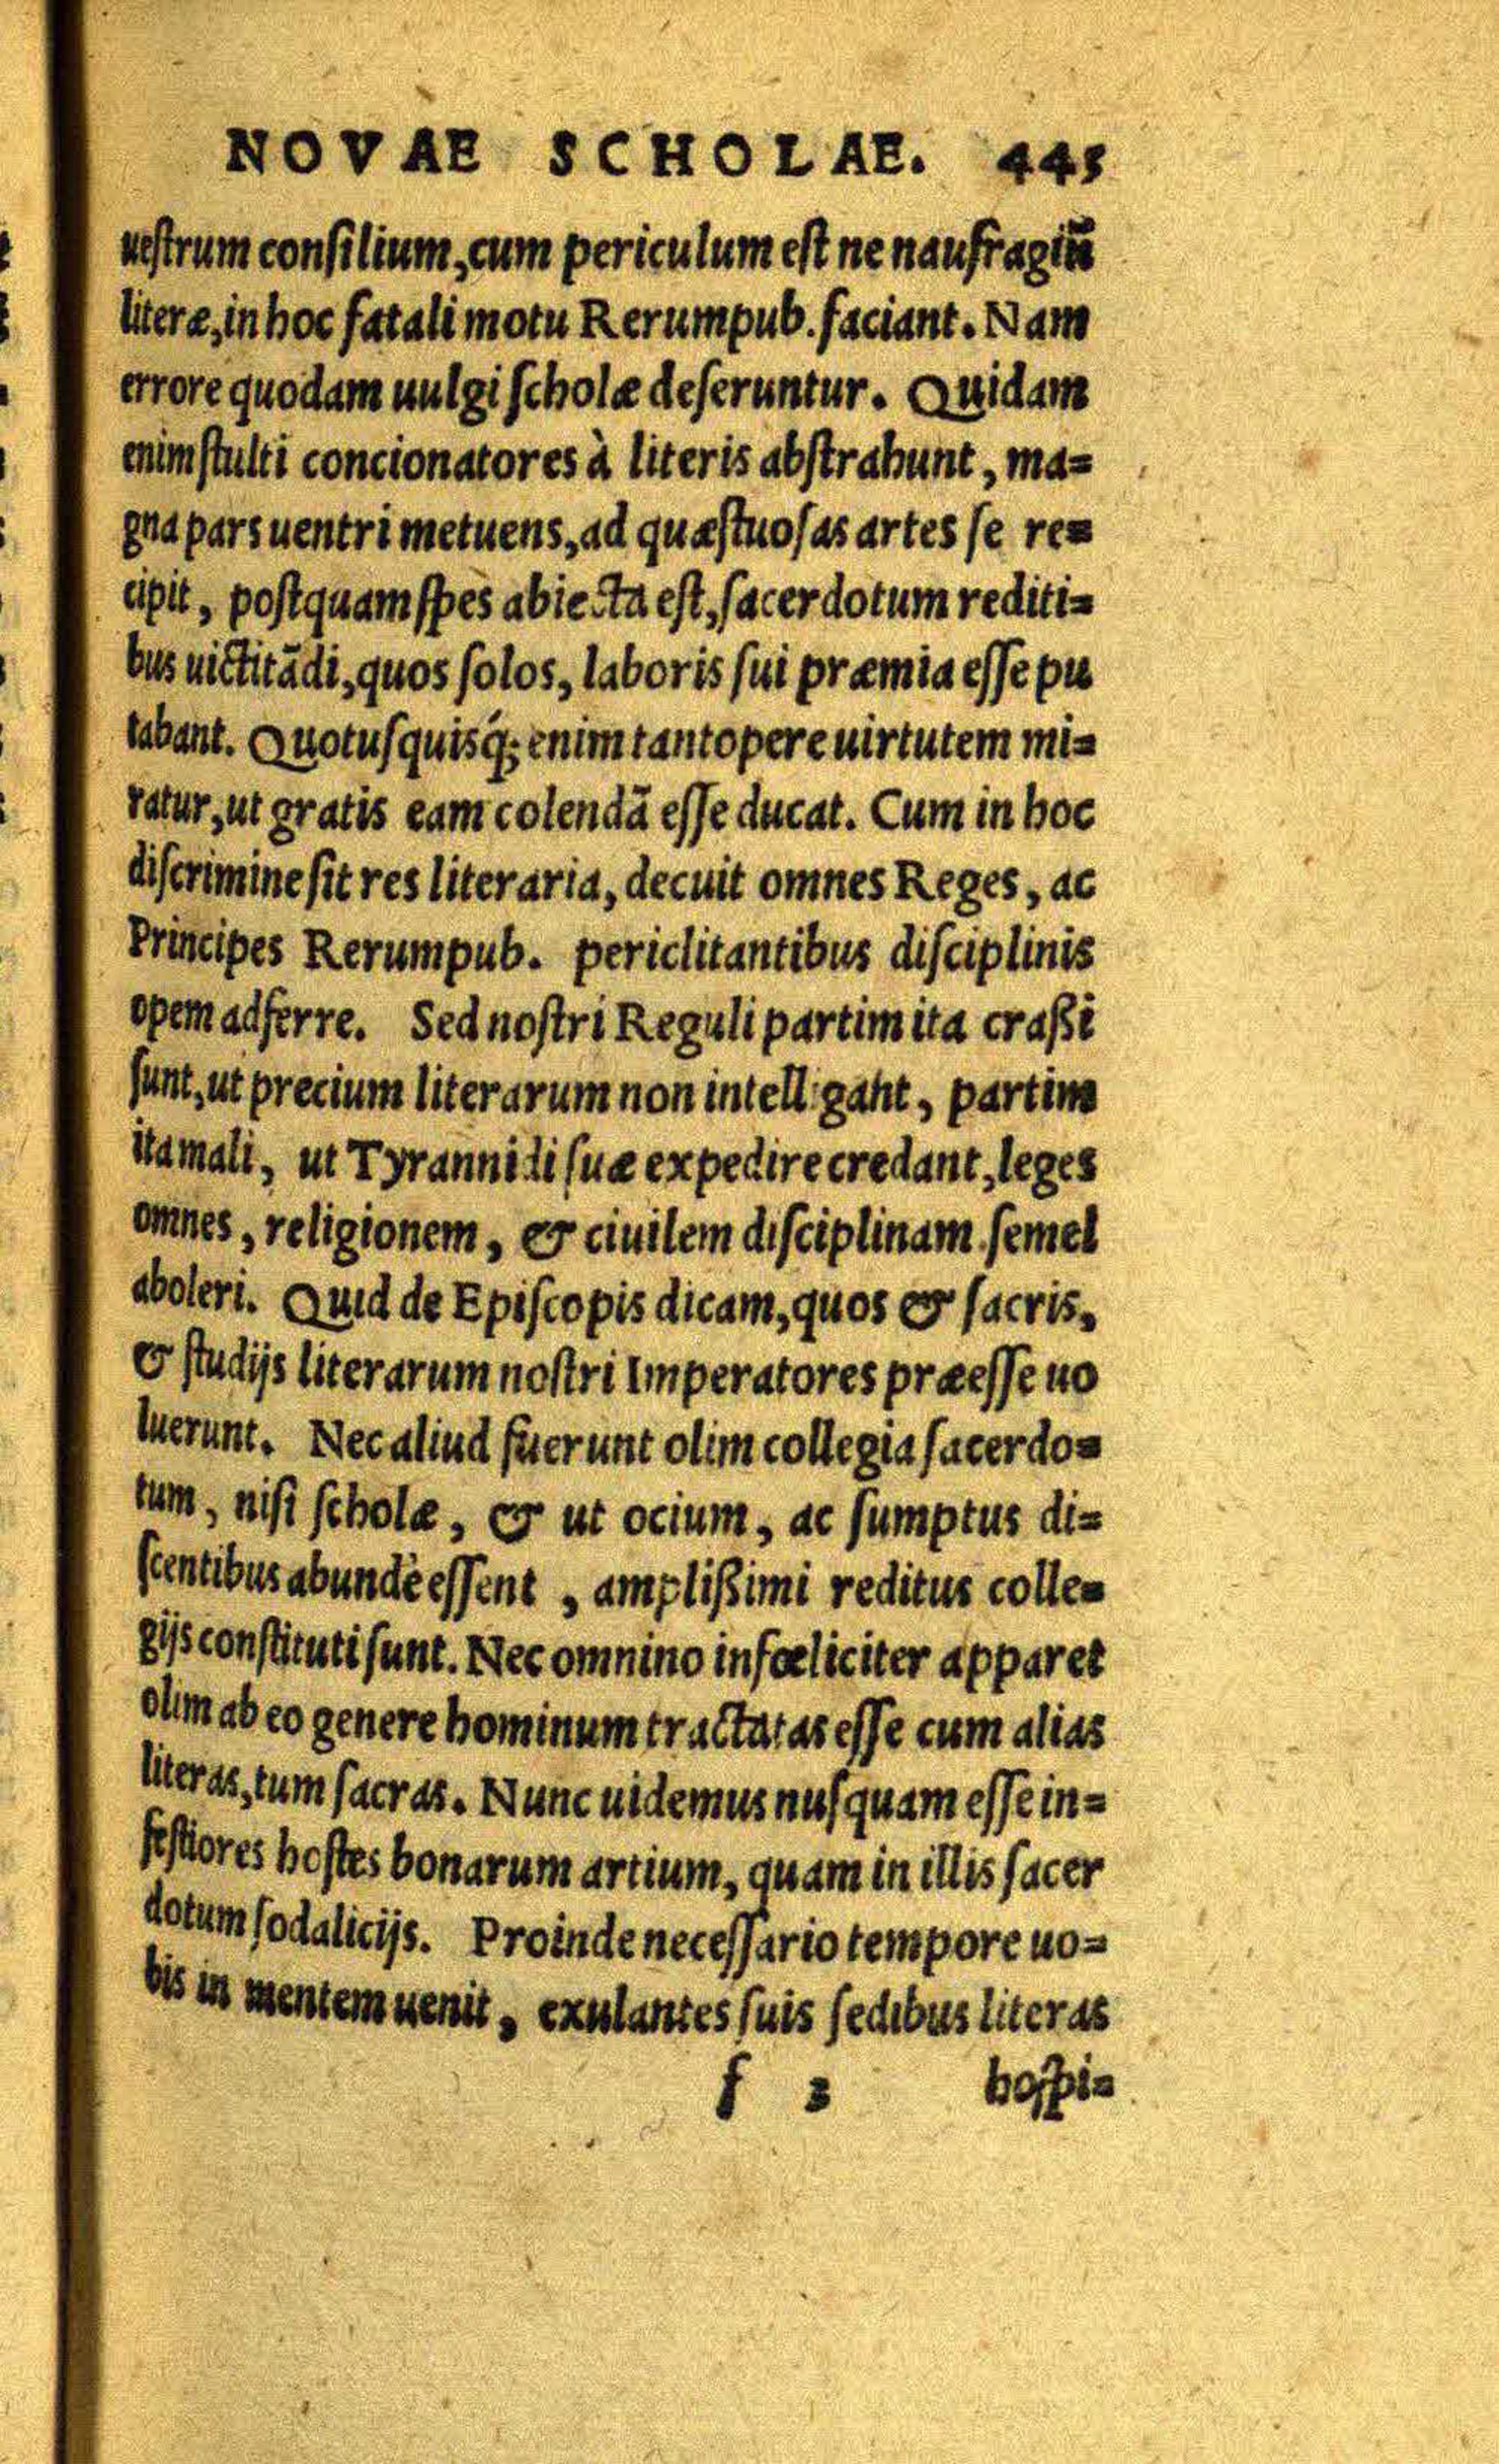 NOVAE SCHOLAE. 445
ueſtrum conſilium, cum periculum eſt ne naufragiū
literæ, in hoc fatali motu Rerumpub. faciant. Nam
errore quodam uulgi ſcholæ deſeruntur. Quidam
enim ſtulti concionatores à literis abſtrahunt, ma=
gna pars uentri metuens, ad quæſtuoſas artes ſe re=
cipit, poſtquam ſpes abiecta eſt, ſacerdotum rediti=
bus uictitādi, quos ſolos, laboris ſui præmia eſſe pu
tabant. Quotuſquisq́; enim tantopere uirtutem mi=
ratur, ut gratis eam colendā eſſe ducat. Cum in hoc
diſcrimine ſit res literaria, decuit omnes Reges, ac
Principes Rerumpub. periclitantibus diſciplinis
opem adferre. Sed noſtri Reguli partim ita craßi
ſunt, ut precium literarum non intelligant, partim
ita mali, ut Tyrannidi ſuæ expedire credant, leges
omnes, religionem, & ciuilem diſciplinam ſemel
aboleri. Quid de Epiſcopis dicam, quos & ſacris,
& ſtudijs literarum noſtri Imperatores præeſſe uo
luerunt. Nec aliud fuerunt olim collegia ſacerdo=
tum, niſi ſcholæ, & ut ocium, ac ſumptus di=
ſcentibus abundè eſſent, amplißimi reditus colle=
gijs conſtituti ſunt. Nec omnino infœliciter apparet
olim ab eo genere hominum tractatas eſſe cum alias
literas, tum ſacras. Nunc uidemus nuſquam eſſe in=
feſtiores hoſtes bonarum artium, quam in illis ſacer
dotum ſodalicijs. Proinde neceſſario tempore uo=
bis in mentem uenit, exulantes ſuis ſedibus literas
f 3 hoſpi=